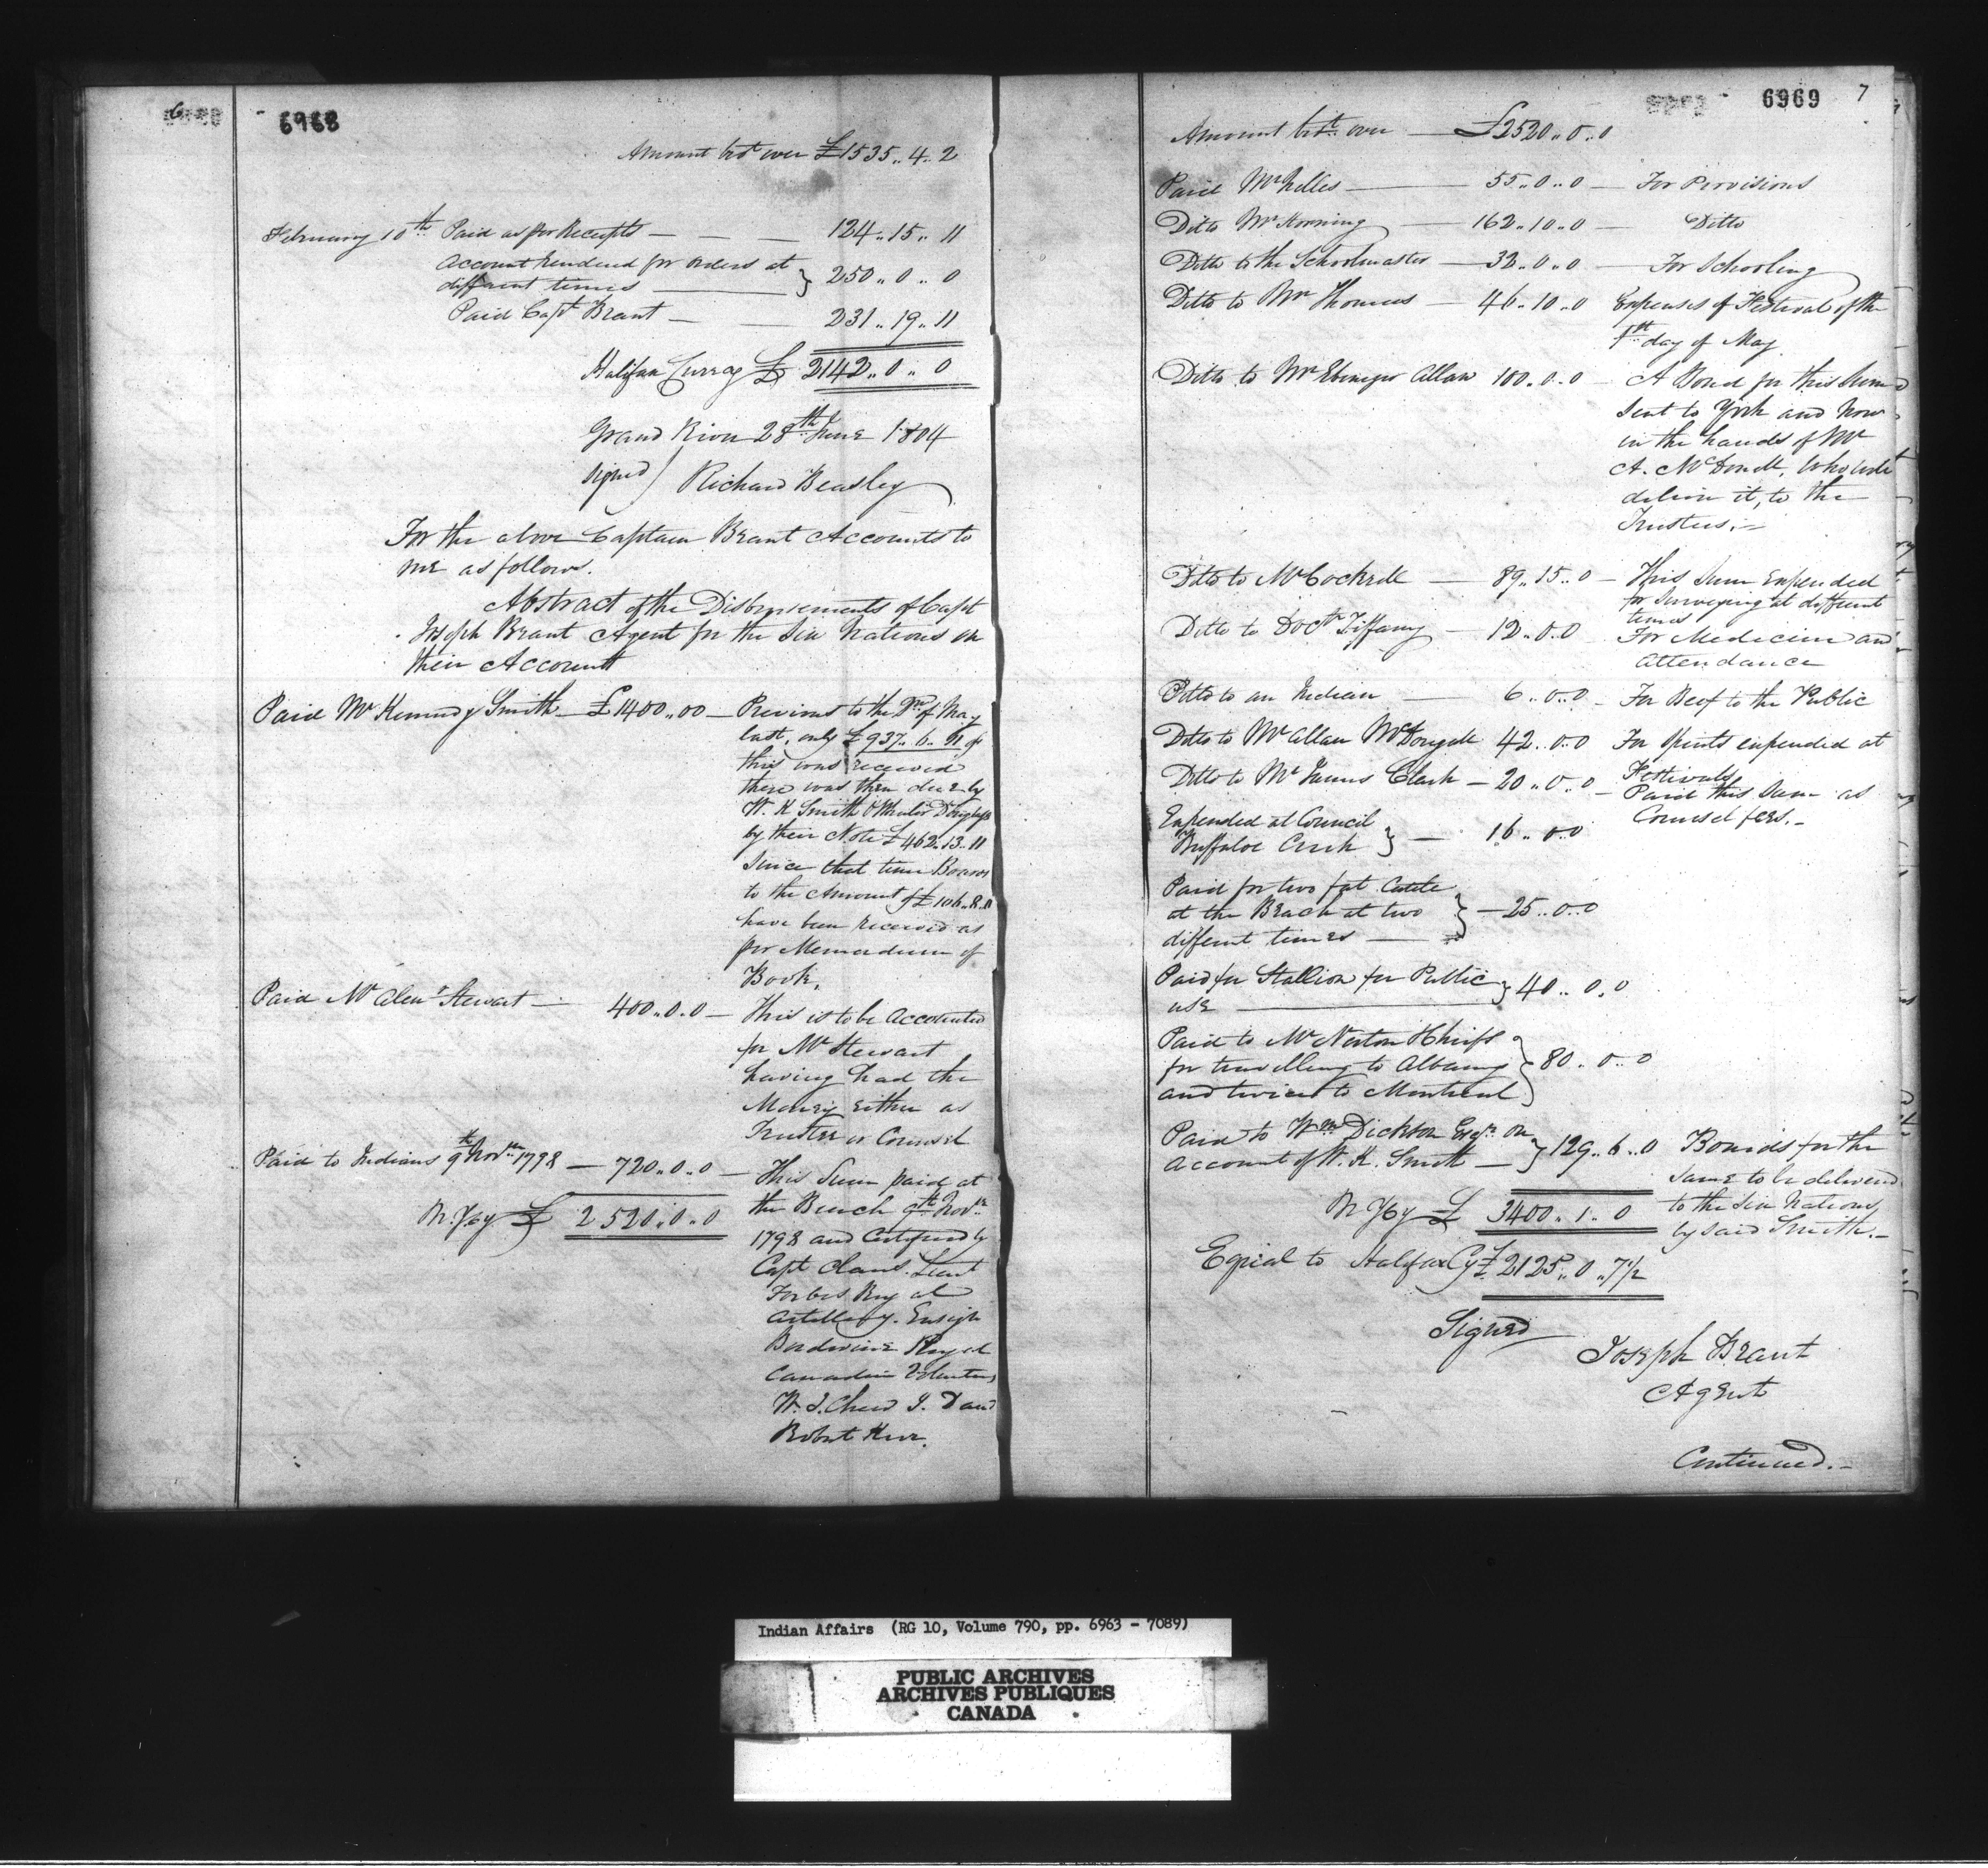 6
6968
Amount brot over £1535.. 4.. 2
February 10th Paid as per Receipts — — — 124.. 15.. 11
Account rendered for orders at
different times — } 250.. 0.. 0
Paid Capt Brant — — 231.. 19.. 11
Halifax Currcy £ 2142.. 0.. 0
Grand River 28th June 1804
signed) Richard Beasley
For the above Captain Brant Accounts to
me as follows.
Abstract of the Disbursements of Capt
Joseph Brant Agent for the Six Nations on
their Account
Paid Mr Kennedy Smith — £1400.. 0 0 — Previous to the of May
last, only £937.. 6.. 11 of
this was received
there was then due by
W. K Smith &
by their Note £462.13.11
Since that time Boards
to the Amount of £106..8.
have been received as
per Memordum of
Book.
Paid Mr Alexr Stewart — 400.. 0.. 0 — This is to be Accounted
for Mr Stewart
having had the
Money either as
Trustee or Counsel
Paid to Indians 9th Novr 1798 — 720.. 0.. 0 — This Sum paid at
the Beach 9th Novr
1798 and Certified by
Capt Claus. Lieut
Forbes Royal
Artillery. Ensign
Royal
Canadian Volunteers
W. J. Chew J. D and
Robert Kerr.
N. Y Cy £ 2520.. 0.. 0
6969 7
Amount brot over — £2520.. 0.. 0
Paid Mr Nelles — 55.. 0.. 0 — For Provisions
Ditto Mr Horning — 162.. 10.. 0 — Ditto
Ditto to the Schoolmaster — 32.. 0.. 0 — For Schooling
Ditto to Mr Thomas — 46.. 10.. 0 Expenses of Festival of the
1st day of May
Ditto to Mr Ebenezer Allan 100.. 0.. 0 — A Bond for this Sum
sent to York and now
in the hands of Mr
A. McDonell, who will
deliver it, to the
Trustees. —
Ditto to Mr Cockrell — 89.. 15.. 0 — This Sum Expended
for Surveying at different
times
Ditto to Doctr Tiffany — 12.. 0.. 0 For Medicine and
Attendance
Ditto to an Indian — 6.. 0.. 0 — For Beef to the Public
Ditto to Mr Allan McDougall 42.. 0.. 0 For Spirits expended at
Festivals
Ditto to Mr James Clark — 20.. 0.. 0 — Paid this Sum as
Counsel fees. —
Expended at Council
Buffaloe Creek } — 16.. 0.. 0
Paid for two fat Cattle
at the Beach at two
different times — } — 25.. 0.. 0
Paid for Stallion for Public
use — } 40.. 0.. 0
Paid to Mr Norton Chief
for travelling to Albany
and twice to Montreal } 80.. 0.. 0
Paid to Wm Dickson Esqr on
account of W. K. Smith — } 129.. 6.. 0 Bonds for the
same to be delivered
to the Six Nations
by said Smith. —
N Y Cy £ 3400.. 1.. 0
Equal to Halifax Cy £2125.. 0.. 7½
Signed
Joseph Brant
Agent
Continued. —
Indian Affairs (RG 10, Volume 790, pp. 6963 - 7089)
PUBLIC ARCHIVES
ARCHIVES PUBLIQUES
CANADA